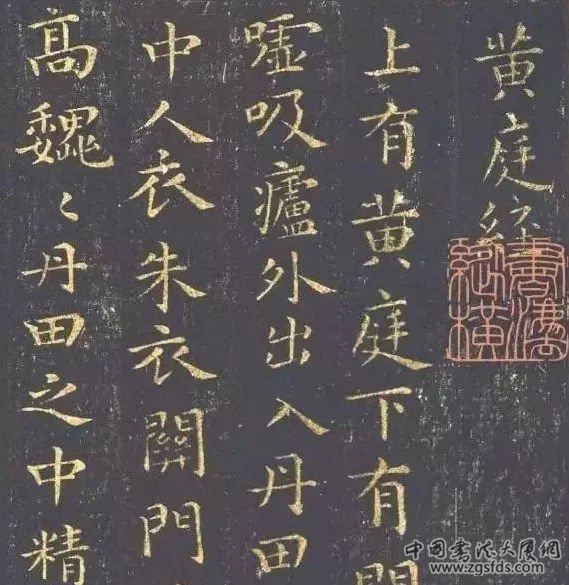 黄庭經
上有黄庭下有
噓吸廬外出入丹田
中人衣朱衣關門
高巍〻丹田之中精
中国书法大展网
www.zgsfds.com